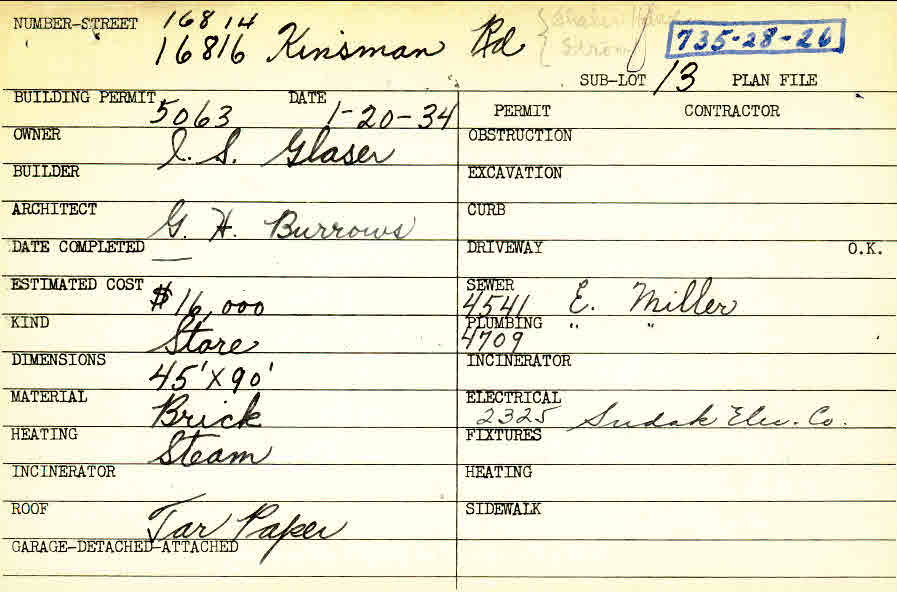 NUMBER-STREET 16814
16816 Kinsman Rd 735-28-26
SUB-LOT 13 PLAN FILE
BUILDING PERMIT 5063 DATE 1-20-34
PERMIT CONTRACTOR
OWNER I. S. Glaser
OBSTRUCTION
BUILDER
EXCAVATION
ARCHITECT G. H. Burrows
CURB
DATE COMPLETED —
DRIVEWAY O.K.
ESTIMATED COST $16,000
SEWER 4541 E. Miller
KIND Store
PLUMBING 4709 " "
DIMENSIONS 45' X 90'
INCINERATOR
MATERIAL Brick
ELECTRICAL 2325 Sudak Elec. Co.
HEATING Steam
FIXTURES
INCINERATOR
HEATING
ROOF Tar Paper
SIDEWALK
GARAGE-DETACHED-ATTACHED